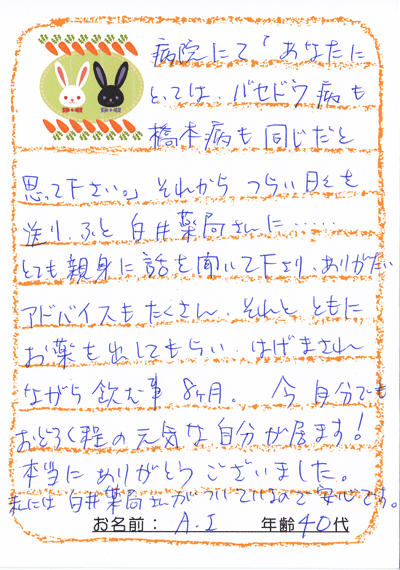 病院にて「あなたに
とっては、バセドウ病も
橋本病も同じだと
思って下さい。」それから つらい日々を
送り、ふと 白井薬局さんに……
とても親身に話を聞いて下さり、ありがたい
アドバイスもたくさん、それと ともに
お薬を出してもらい はげまされ
ながら 飲む事 8ヶ月。 今 自分でも
おどろく程の元気な自分が居ます!
本当に ありがとう ございました。
私には 白井薬局さんがついているので 安心です。
お名前: A.I 年齢40代